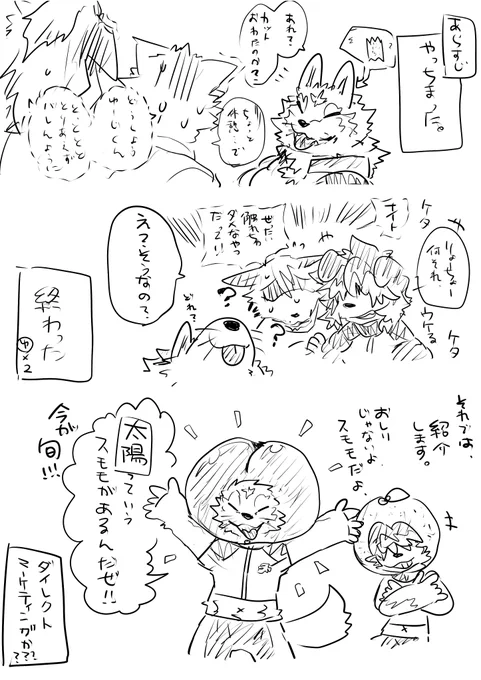 あらすじ
やっちまった。
あれ?
カット
おわたのか?
ちょいと
休憩って
どうしよう
ゆーじくん
そ とととと
とりあえず
バレんように
ケタ
ケタ
りょーちゃー
何それー
ウケる
ぜったい
触れちゃ
ダメなやつ
だって!!
どれ?
えっそうなの?
終わった
ゆ×2
それでは、
紹介
します。
おしり
じゃないよ、
スモモだよ。
太陽っていう
スモモがあるんだぜ!!
今が
旬!!!
ダイレクト
マーケティングか???